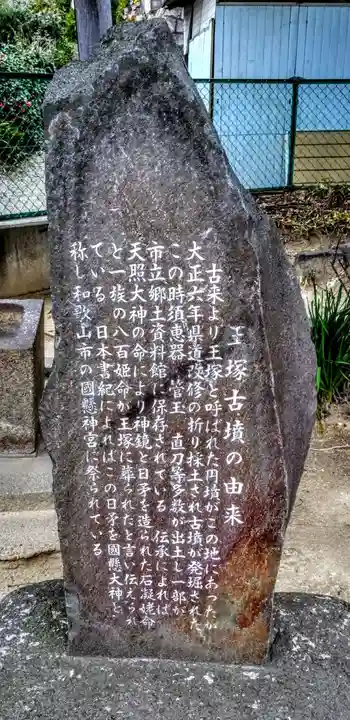 王塚古墳の由来
古来より王塚と呼ばれた円墳がこの地にあったが
大正六年県道改修の折り採土され古墳が発掘された
この時須恵器、管玉、直刀等多数が出土し一部が
市立郷土資料館に保存されている 伝承によれば
天照大神の命により神鏡と日矛を造られた石凝姥命
と一族の八百姫命が王塚に葬られたと言い伝えられ
ている 日本書紀によればこの日矛を國懸大神と
称し和歌山市の國懸神宮に祭られている